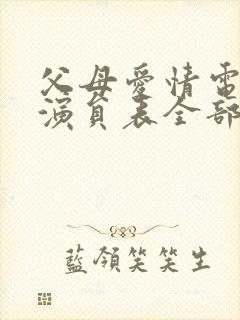 父母愛情電
演員表全部
藍領笑笑生